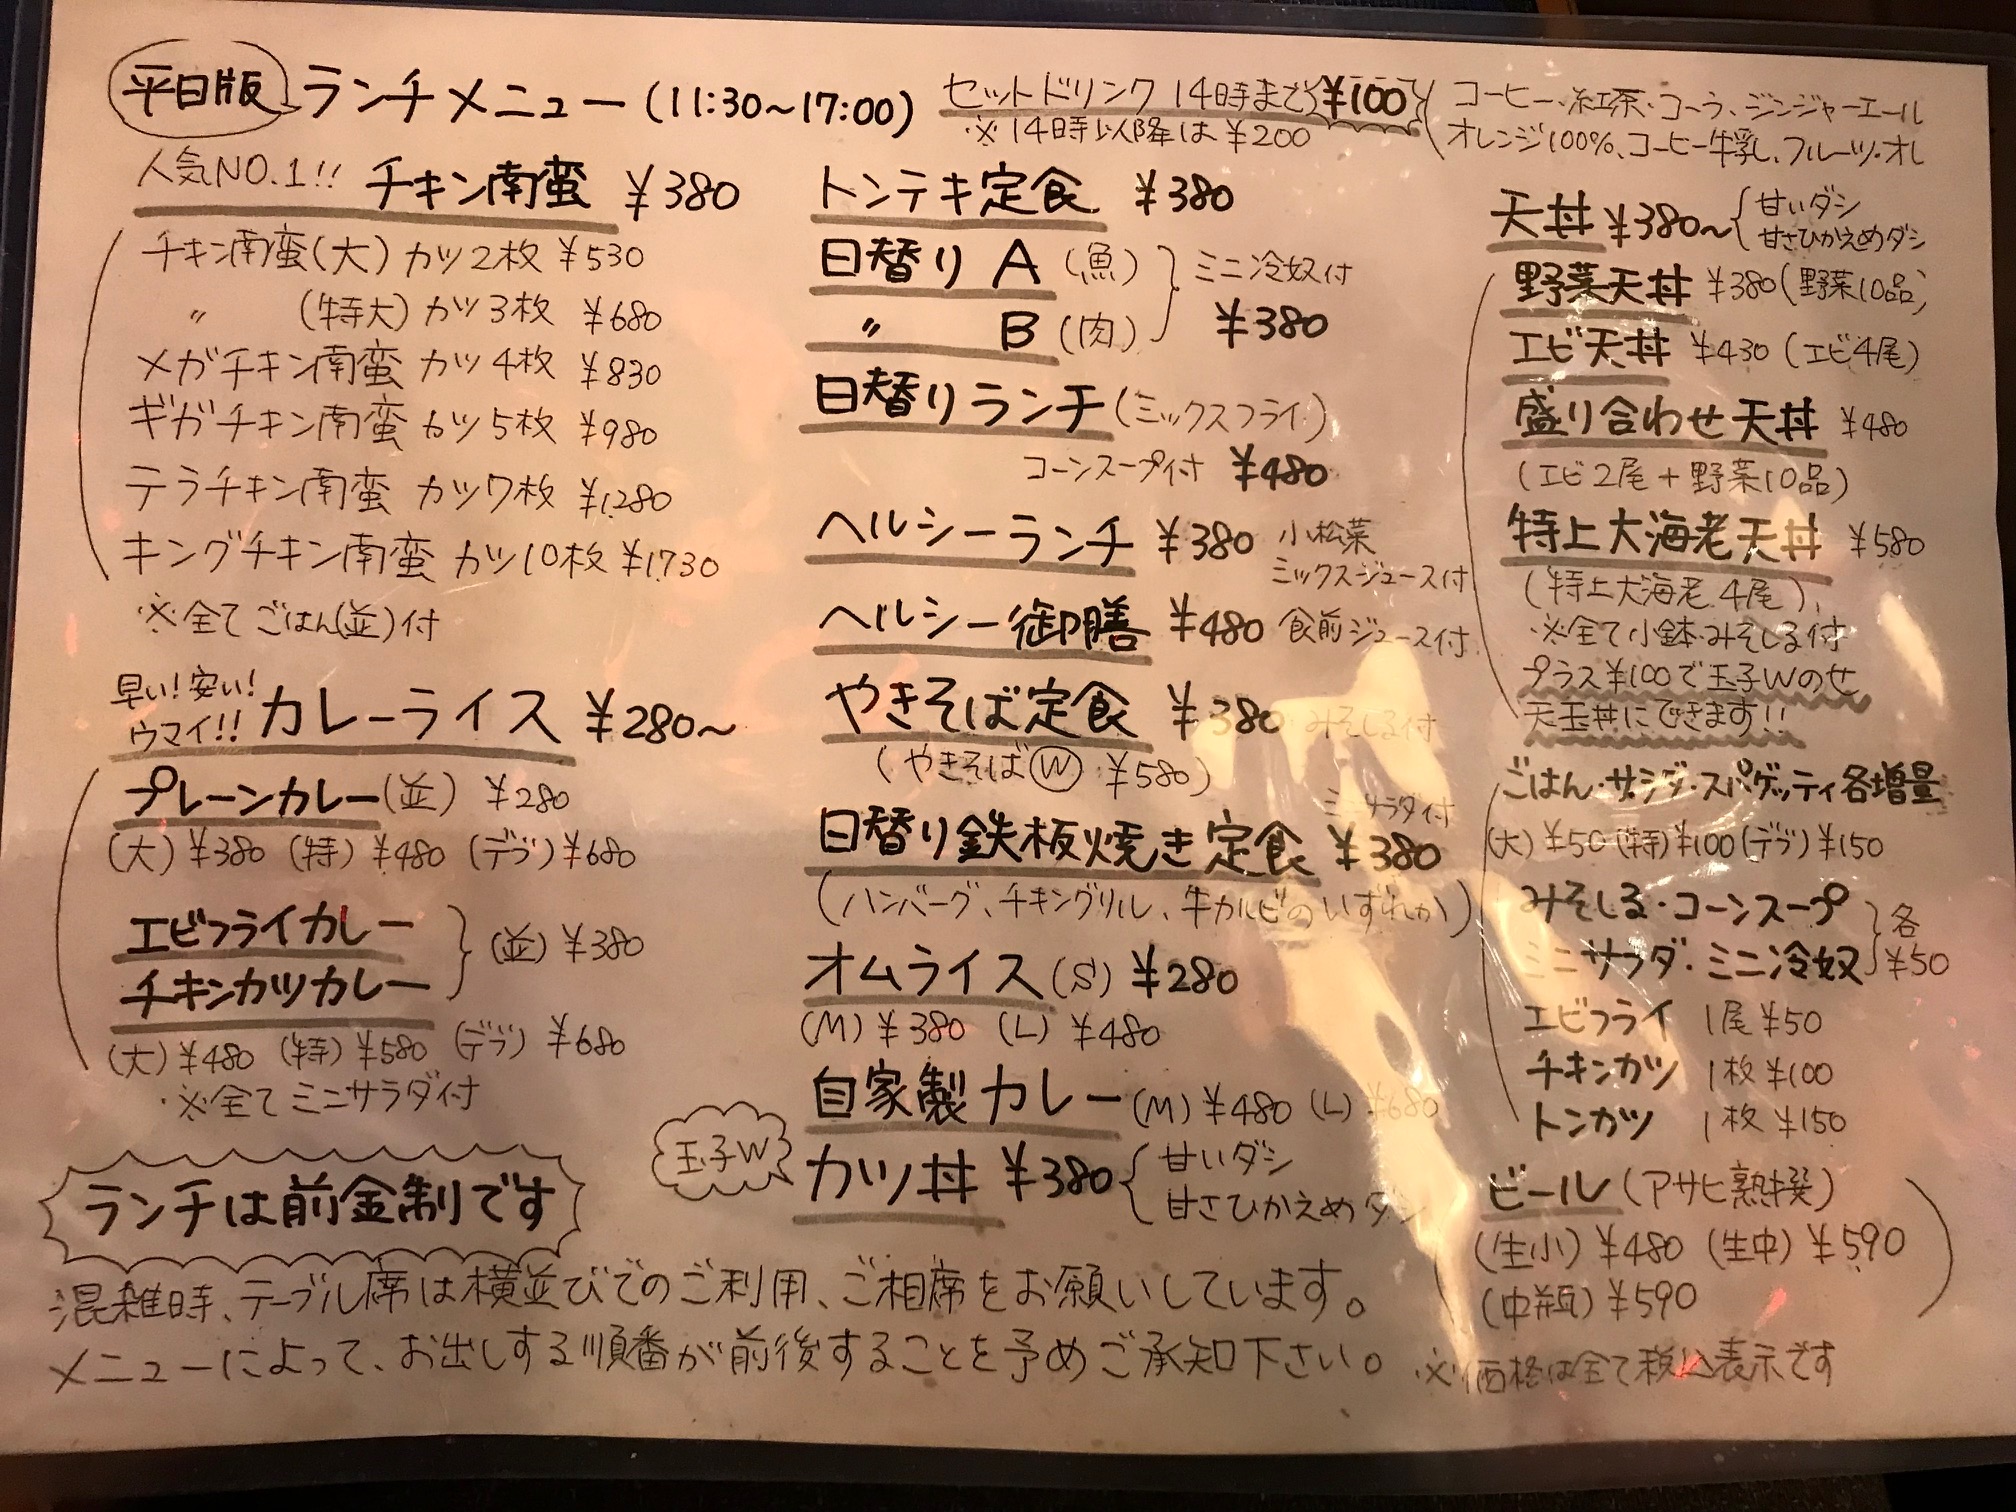 平日版 ランチメニュー (11:30〜17:00)
セットドリンク 14時まで ¥100
※14時以降は ¥200
コーヒー・紅茶・コーラ、ジンジャーエール
オレンジ100%、コーヒー牛乳、フルーツ・オレ
人気NO.1!! チキン南蛮 ¥380
チキン南蛮(大) カツ2枚 ¥530
〃 (特大) カツ3枚 ¥680
メガチキン南蛮 カツ4枚 ¥830
ギガチキン南蛮 カツ5枚 ¥980
テラチキン南蛮 カツ7枚 ¥1,280
キングチキン南蛮 カツ10枚 ¥1,730
※全てごはん(並)付
早い!安い!
ウマイ!! カレーライス ¥280〜
プレーンカレー(並) ¥280
(大) ¥380 (特) ¥480 (デブ) ¥680
エビフライカレー
チキンカツカレー
(並) ¥380
(大) ¥480 (特) ¥580 (デブ) ¥680
※全てミニサラダ付
ランチは前金制です
トンテキ定食 ¥380
日替り A (魚)
〃 B (肉)
ミニ冷奴付
¥380
日替りランチ(ミックスフライ)
コーンスープ付 ¥480
ヘルシーランチ ¥380 小松菜
ミックスジュース付
ヘルシー御膳 ¥480 食前ジュース付
やきそば定食 ¥380 みそしる付
(やきそばW ¥580)
ミニサラダ付
日替り鉄板焼き定食 ¥380
(ハンバーグ、チキングリル、牛カルビのいずれか)
オムライス(S) ¥280
(M) ¥380 (L) ¥480
自家製カレー (M) ¥480 (L) ¥680
玉子W
カツ丼 ¥380 甘いダシ
甘さひかえめダシ
天丼 ¥380〜 甘いダシ
甘さひかえめダシ
野菜天丼 ¥380 (野菜10品)
エビ天丼 ¥430 (エビ4尾)
盛り合わせ天丼 ¥480
(エビ2尾+野菜10品)
特上大海老天丼 ¥580
(特上大海老4尾)
※全て小鉢・みそしる付
プラス¥100で玉子Wのせ
天玉丼にできます!!
ごはん・サラダ・スパゲッティ各増量
(大) ¥50 (特) ¥100 (デブ) ¥150
みそしる・コーンスープ
ミニサラダ・ミニ冷奴
各
¥50
エビフライ 1尾 ¥50
チキンカツ 1枚 ¥100
トンカツ 1枚 ¥150
ビール (アサヒ熟撰)
(生小) ¥480 (生中) ¥590
(中瓶) ¥590
混雑時、テーブル席は横並びでのご利用、ご相席をお願いしています。
メニューによって、お出しする順番が前後することを予めご承知下さい。
※価格は全て税込表示です